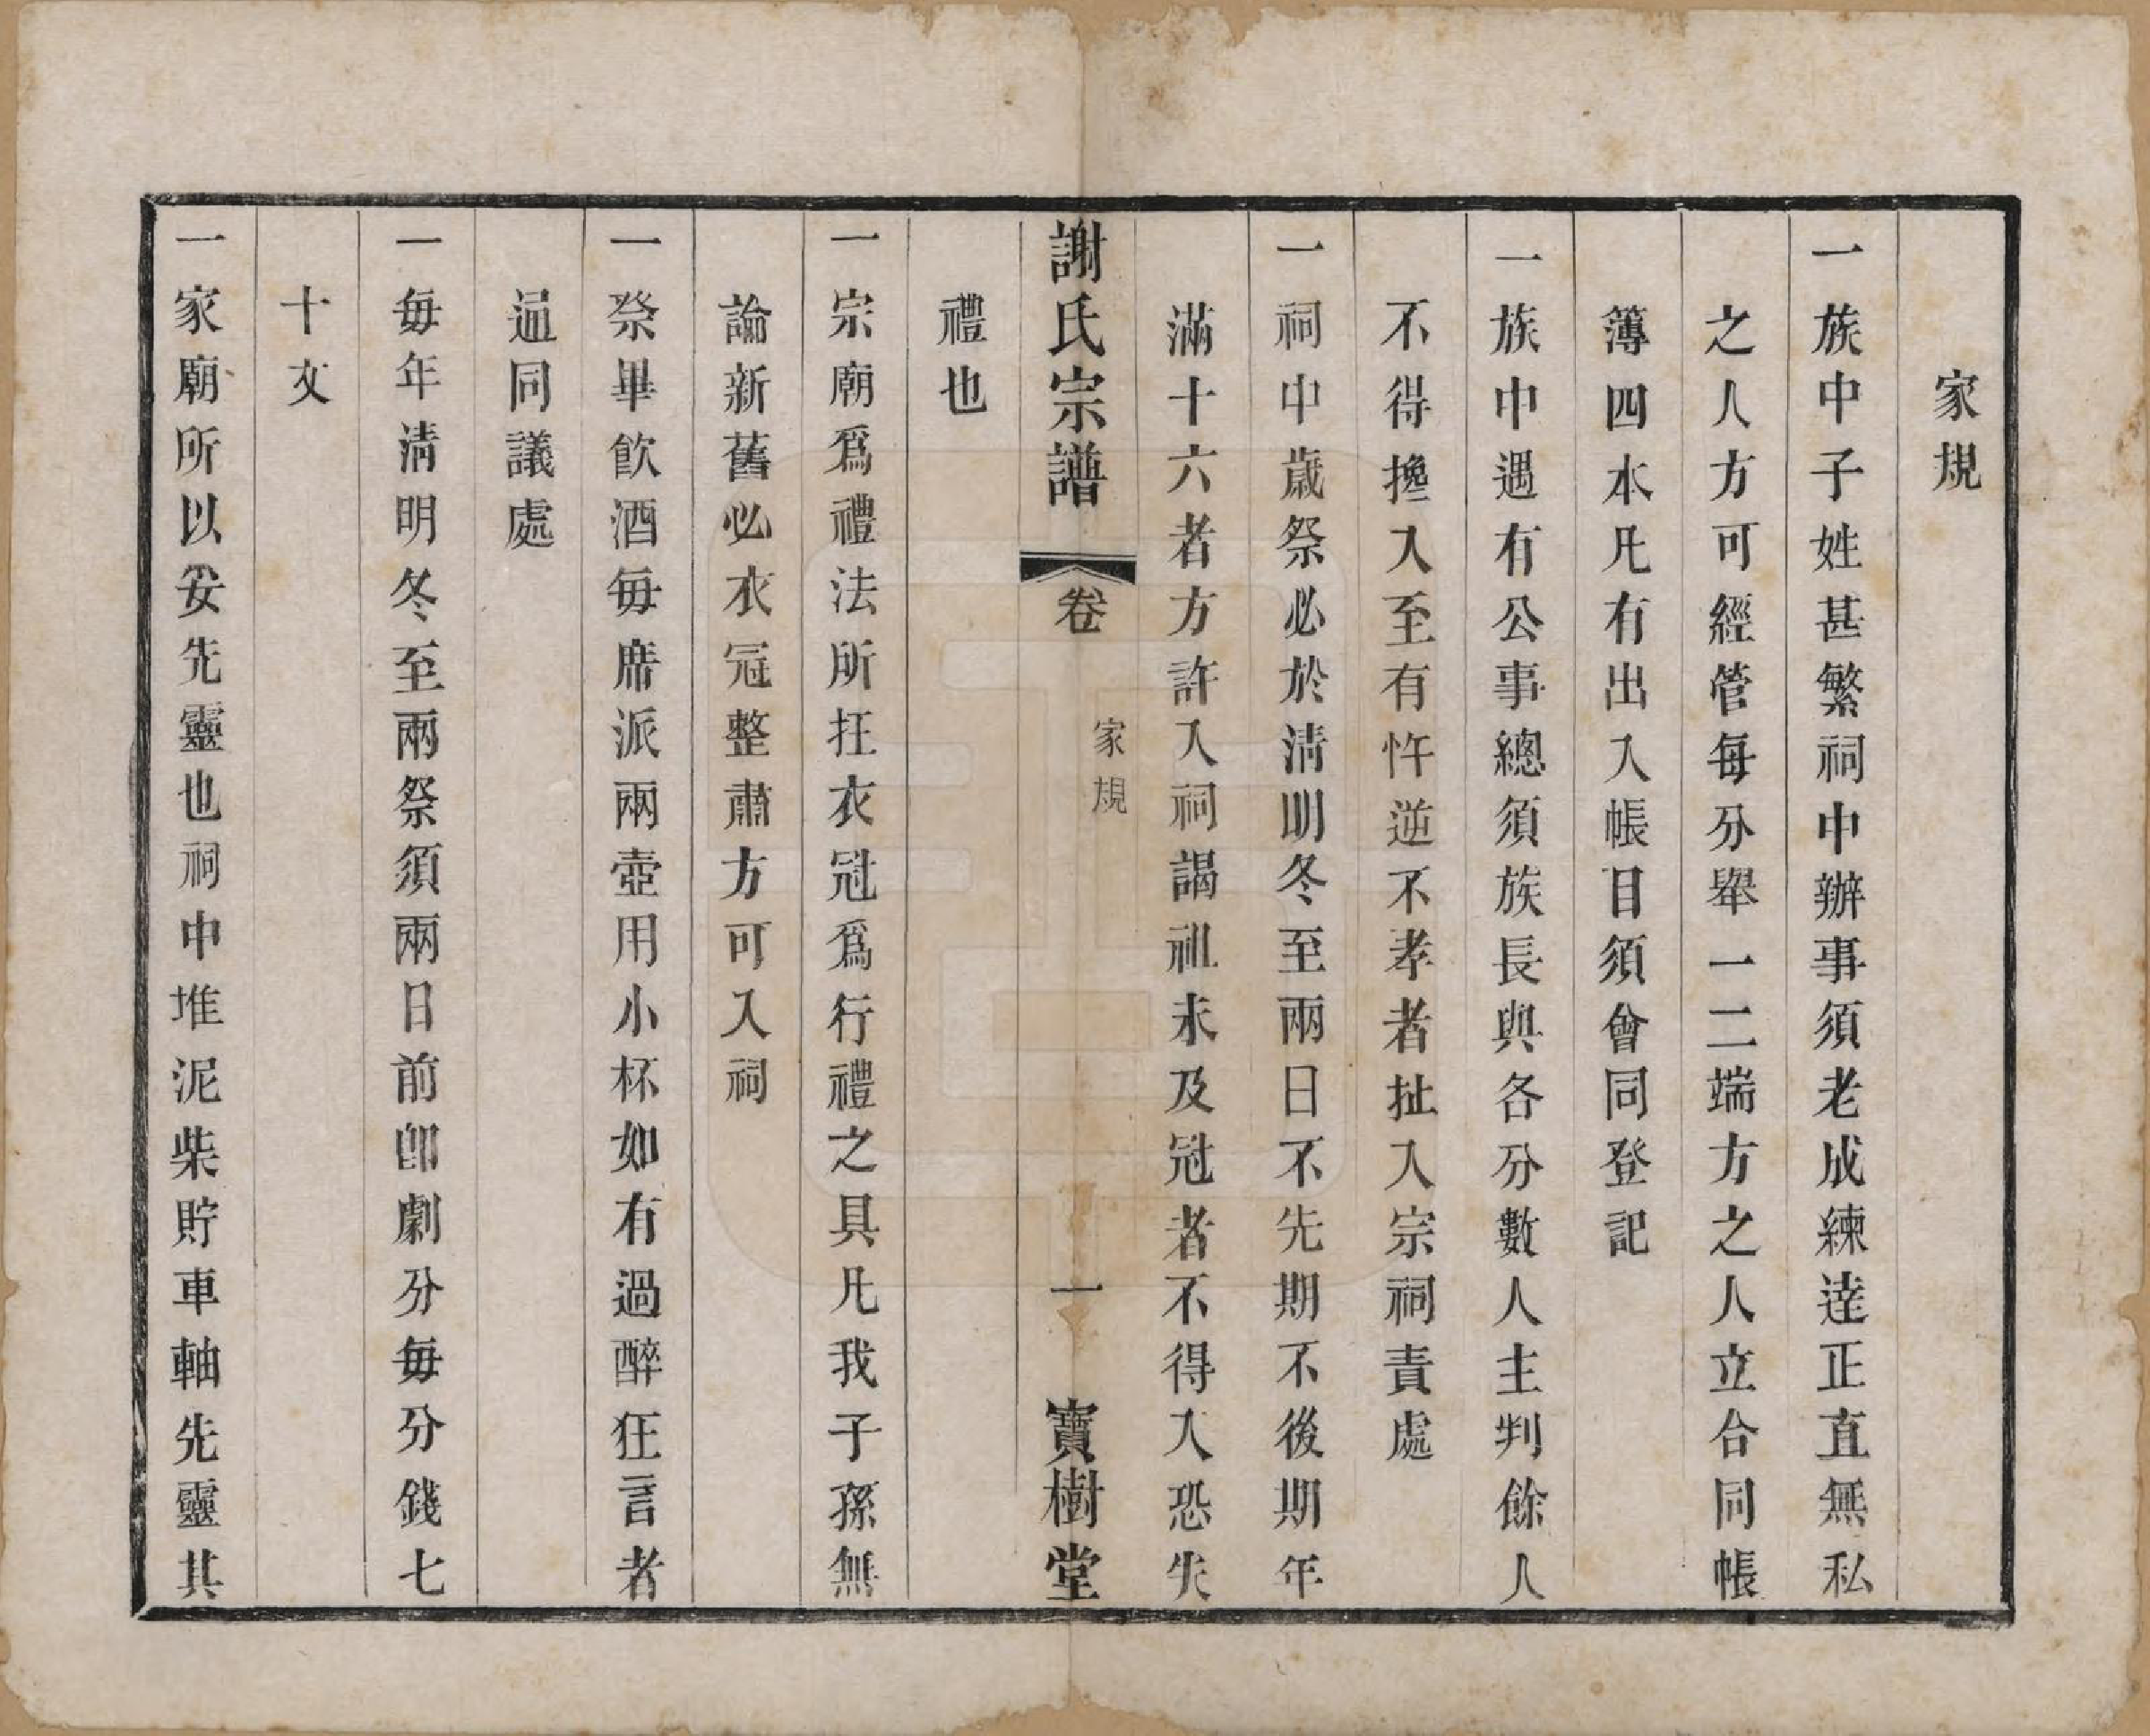 家規
一族中子姓甚繁祠中辦事須老成練達正直無私
之人方可經管每分舉一二端方之人立合同帳
簿四本凡有出入帳目須會同登記
一族中遇有公事總須族長與各分數人主判餘人
不得攙入至有忤逆不孝者扯入宗祠責處
一祠中歲祭必於清明冬至兩日不先期不後期年
滿十六者方許入祠謁祖未及冠者不得入恐失
謝氏宗譜 卷 家規 一 寶樹堂
禮也
一宗廟爲禮法所在衣冠爲行禮之具凡我子孫無
論新舊必衣冠整肅方可入祠
一祭畢飲酒每席派兩壺用小杯如有過醉狂言者
通同議處
一每年清明冬至兩祭須兩日前卽劇分每分錢七
十文
一家廟所以安先靈也祠中堆泥柴貯車軸先靈其